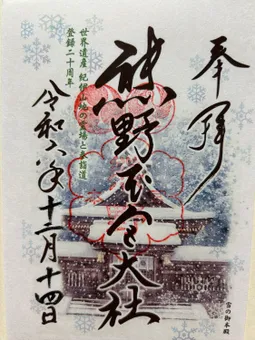 奉拝
熊野本宮大社
世界遺産 紀伊山地の霊場と参詣道
登録二十周年
令和六年十二月十四日
雪の御本殿